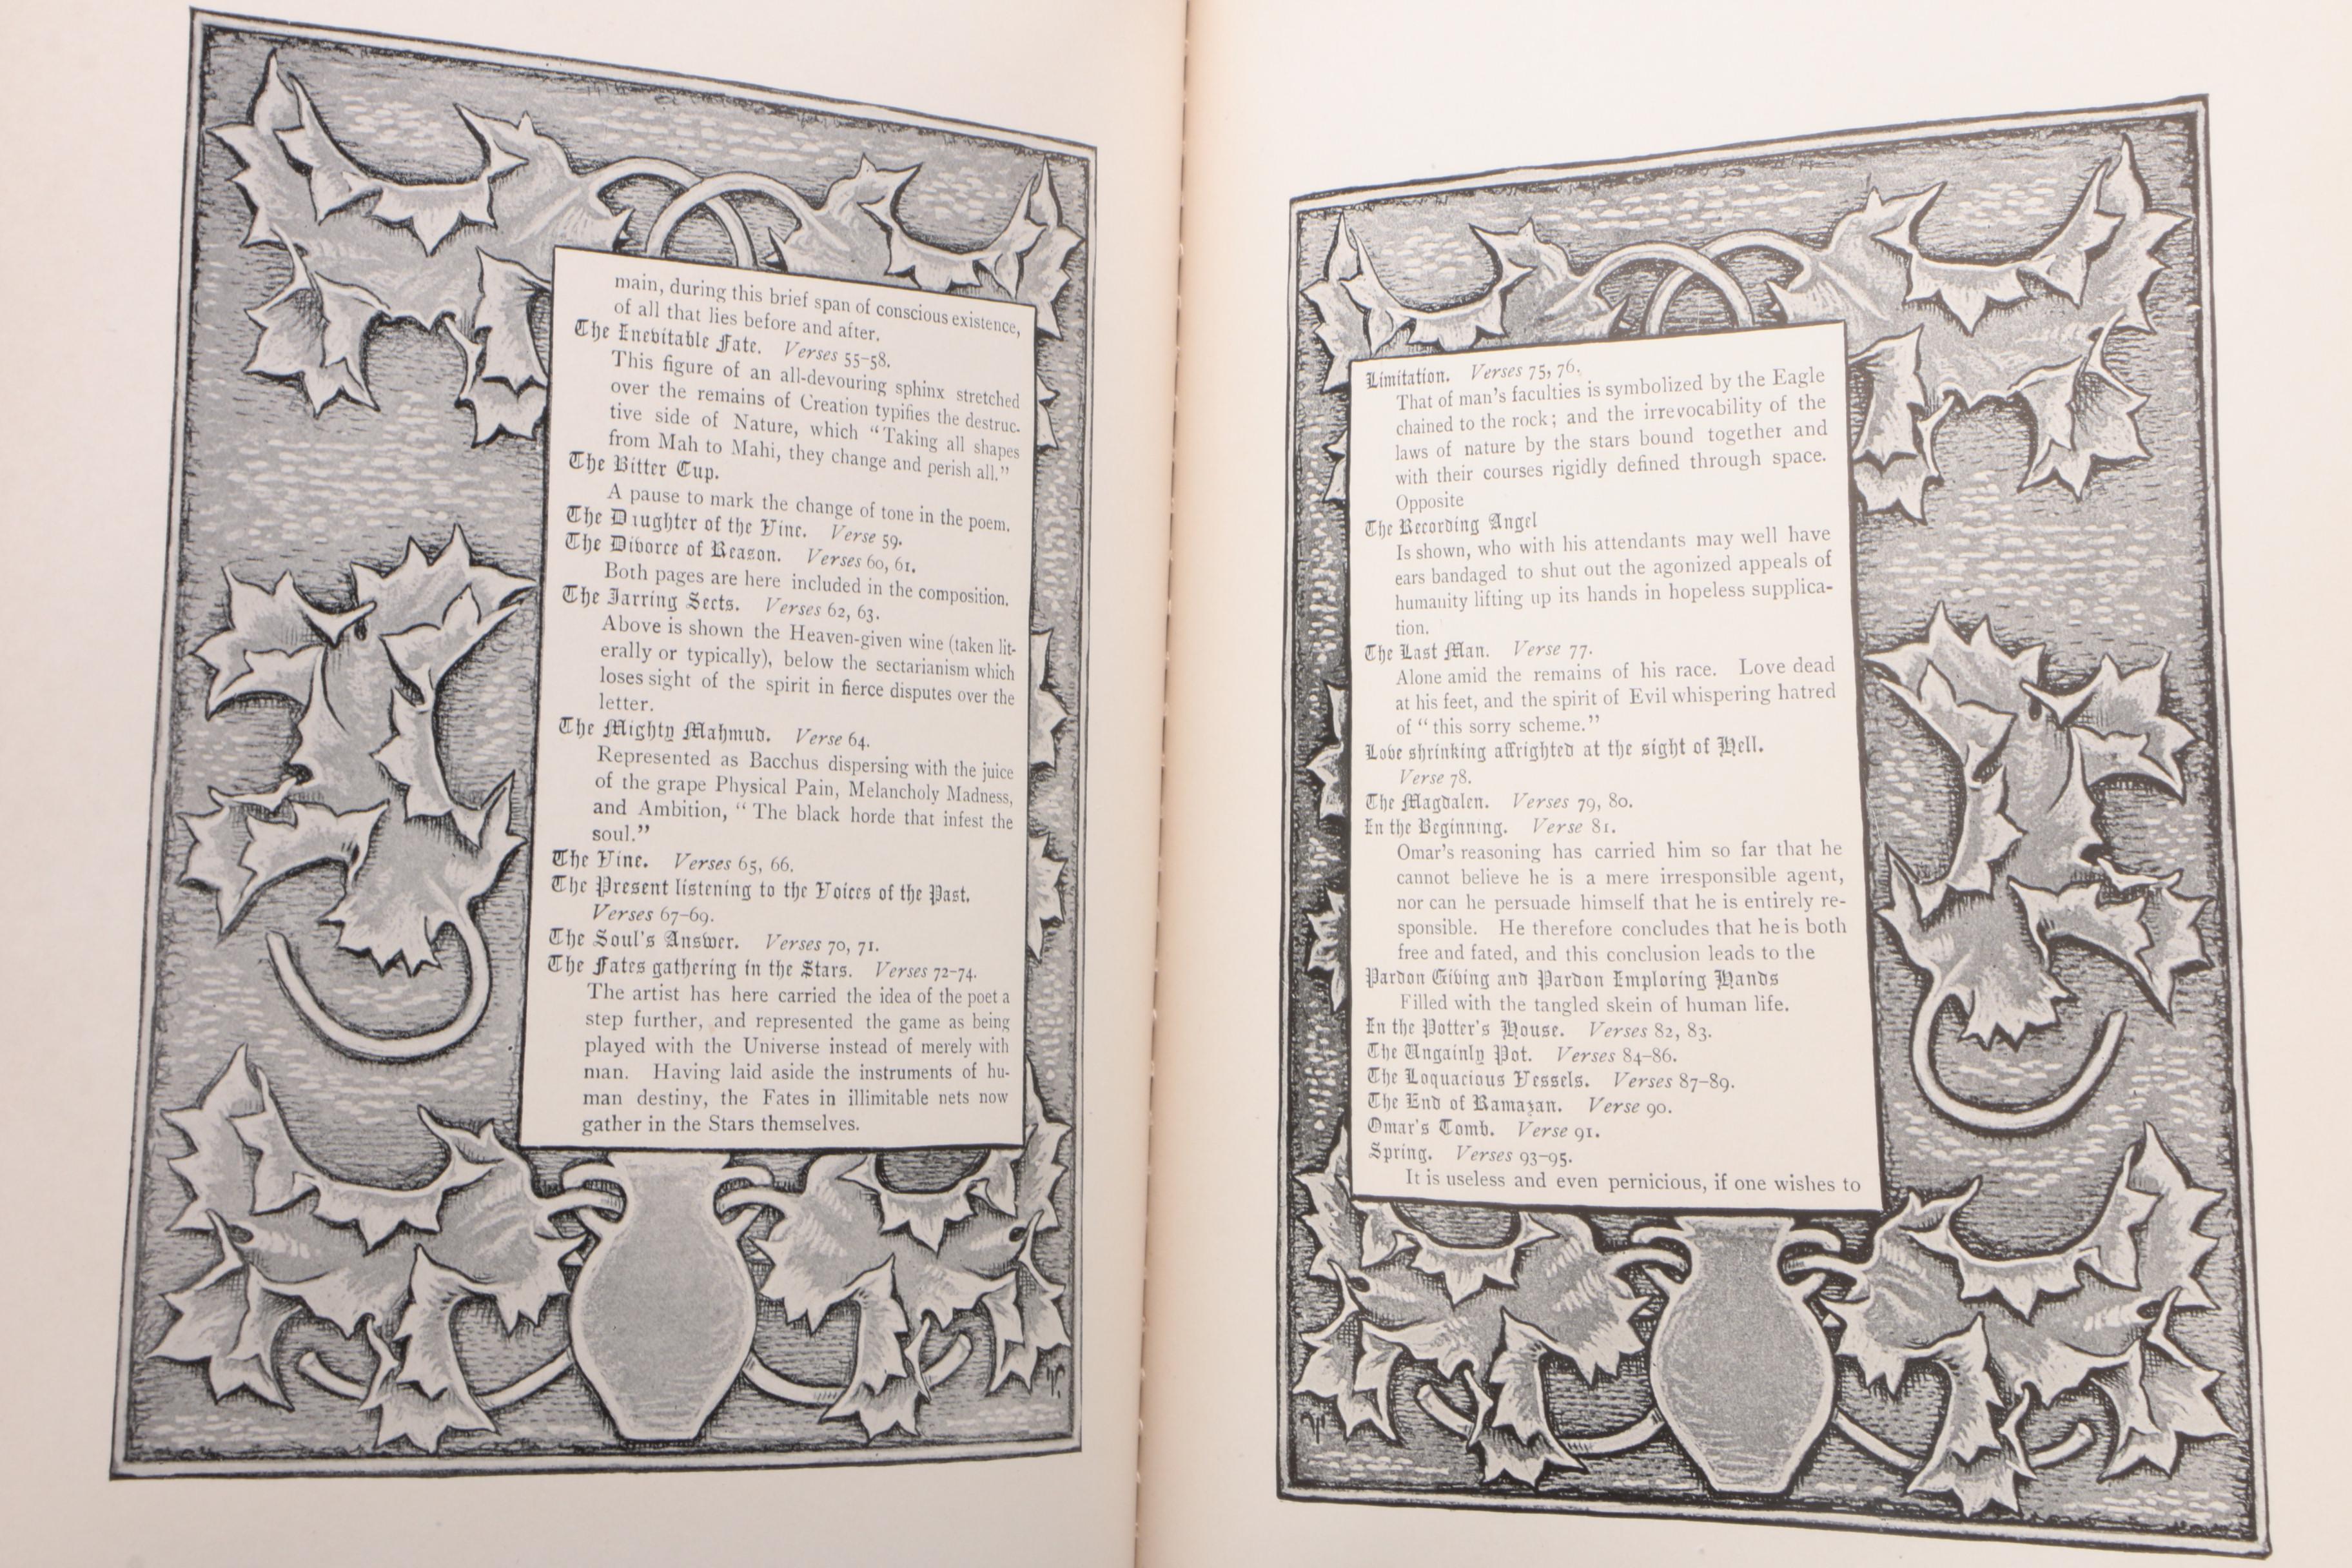 main, during this brief span of conscious existence,
of all that lies before and after.
The Inevitable Fate. Verses 55–58.
This figure of an all-devouring sphinx stretched
over the remains of Creation typifies the destruc-
tive side of Nature, which “Taking all shapes
from Mah to Mahi, they change and perish all.”
The Bitter Cup.
A pause to mark the change of tone in the poem.
The Daughter of the Vine. Verse 59.
The Divorce of Reason. Verses 60, 61.
Both pages are here included in the composition.
The Jarring Sects. Verses 62, 63.
Above is shown the Heaven-given wine (taken lit-
erally or typically), below the sectarianism which
loses sight of the spirit in fierce disputes over the
letter.
The Mighty Mahmud. Verse 64.
Represented as Bacchus dispersing with the juice
of the grape Physical Pain, Melancholy Madness,
and Ambition, “The black horde that infest the
soul.”
The Vine. Verses 65, 66.
The Present listening to the Voices of the Past.
Verses 67–69.
The Soul's Answer. Verses 70, 71.
The Fates gathering in the Stars. Verses 72–74.
The artist has here carried the idea of the poet a
step further, and represented the game as being
played with the Universe instead of merely with
man. Having laid aside the instruments of hu-
man destiny, the Fates in illimitable nets now
gather in the Stars themselves.
Limitation. Verses 75, 76.
That of man's faculties is symbolized by the Eagle
chained to the rock; and the irrevocability of the
laws of nature by the stars bound together and
with their courses rigidly defined through space.
Opposite
The Recording Angel
Is shown, who with his attendants may well have
ears bandaged to shut out the agonized appeals of
humanity lifting up its hands in hopeless supplica-
tion.
The Last Man. Verse 77.
Alone amid the remains of his race. Love dead
at his feet, and the spirit of Evil whispering hatred
of “this sorry scheme.”
Love shrinking affrighted at the sight of Hell.
Verse 78.
The Magdalen. Verses 79, 80.
In the Beginning. Verse 81.
Omar's reasoning has carried him so far that he
cannot believe he is a mere irresponsible agent,
nor can he persuade himself that he is entirely re-
sponsible. He therefore concludes that he is both
free and fated, and this conclusion leads to the
Pardon Giving and Pardon Imploring Hands
Filled with the tangled skein of human life.
In the Potter's House. Verses 82, 83.
The Ungainly Pot. Verses 84–86.
The Loquacious Vessels. Verses 87–89.
The End of Ramazan. Verse 90.
Omar's Tomb. Verse 91.
Spring. Verses 93–95.
It is useless and even pernicious, if one wishes to